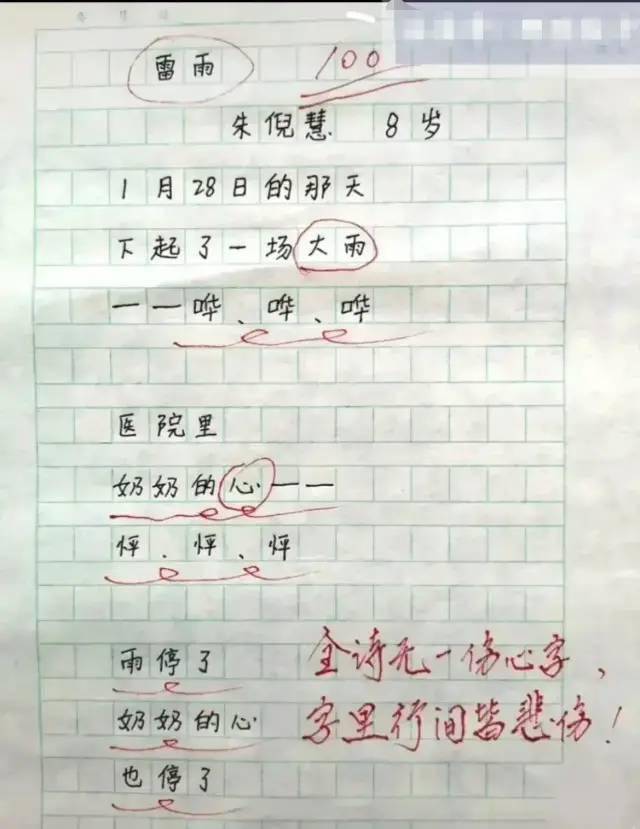 雷雨 100
朱倪慧 8岁
1月28日的那天
下起了一场大雨
——哗、哗、哗
医院里
奶奶的心——
怦、怦、怦
雨停了
奶奶的心
也停了
全诗无一伤心字,
字里行间皆悲伤!